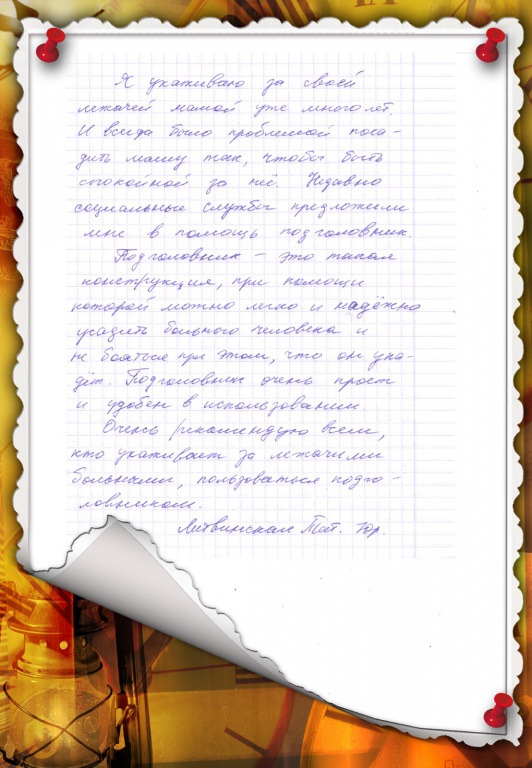 Я ухаживаю за своей
лежачей мамой уже много лет.
И всегда было проблемой поса-
дить маму так, чтобы быть
спокойной за неё. Недавно
социальные службы предложили
мне в помощь подголовник.
Подголовник - это такая
конструкция, при помощи
которой можно легко и надёжно
усадить больного человека и
не бояться при этом, что он упа-
дёт. Подголовник очень прост
и удобен в использовании.
Очень рекомендую всем,
кто ухаживает за лежачими
больными, пользоваться подго-
ловником.
Литвинская Тат. Юр.